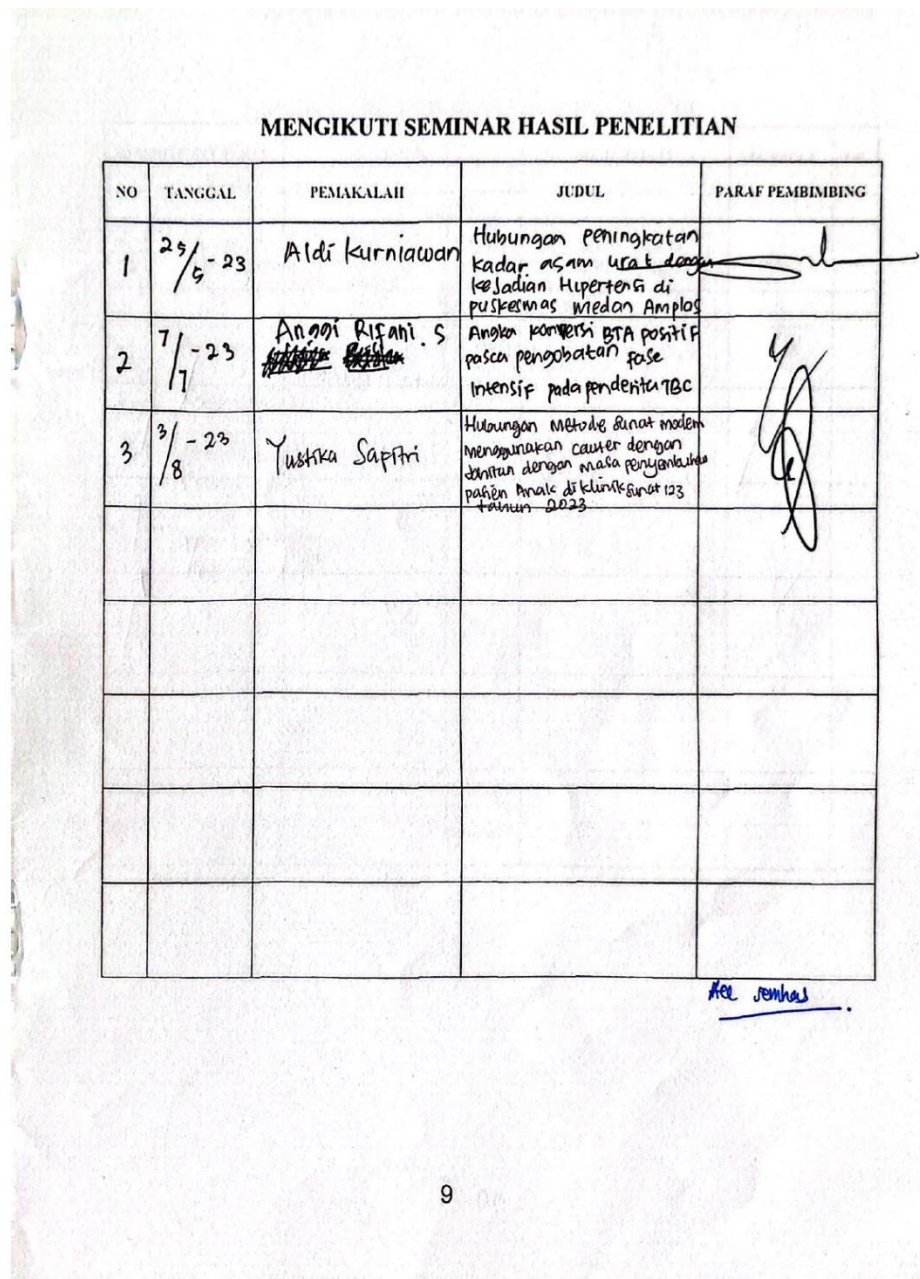 MENGIKUTI SEMINAR HASIL PENELITIAN
NO TANGGAL PEMAKALAH JUDUL PARAF PEMBIMBING
1 25/5-23 Aldi Kurniawan Hubungan peningkatan
kadar asam urat dengan
kejadian Hipertensi di
puskesmas Medan Amplas
2 7/7-23 Anggi Rifani . S Angka konversi BTA positif
pasca pengobatan fase
Intensif pada penderita TBC
3 3/8-23 Yustika Sapitri Hubungan Metode sunat modern
menggunakan cauter dengan
Jahitan dengan masa penyembuhan
pasien Anak di klinik sunat 123
tahun 2023
Acc semhas
9